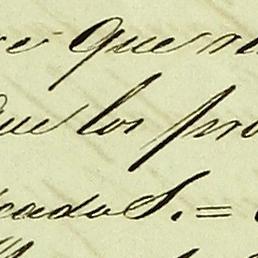 que
que los pro
cados. =